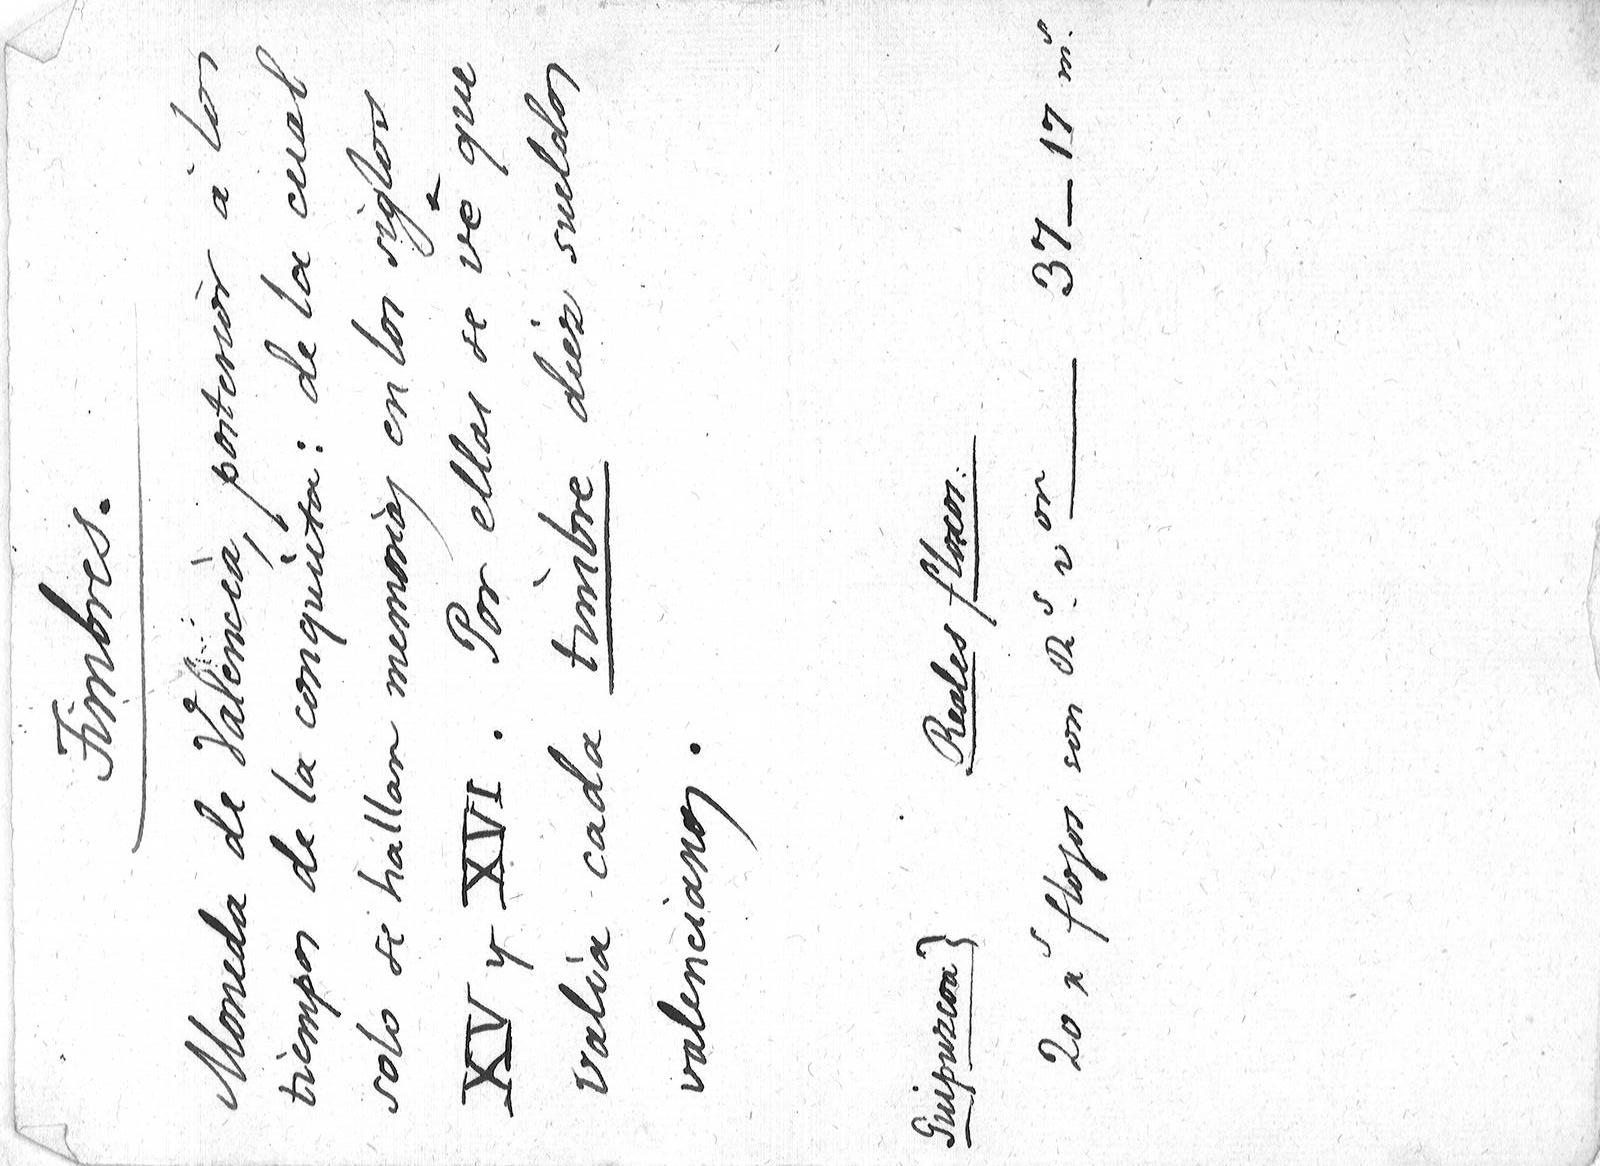 Timbres.
Moneda de Valencia, posterior à los
tiempos de la conquista: de la cual
solo se hallan memorias en los siglos
XV y XVI. Por ellas se vé que
valia cada timbre diez sueldos
valencianos.
Guipuzcoa} Reales floxos.
20 rs flojos son Rs. von — 37—17 ms.